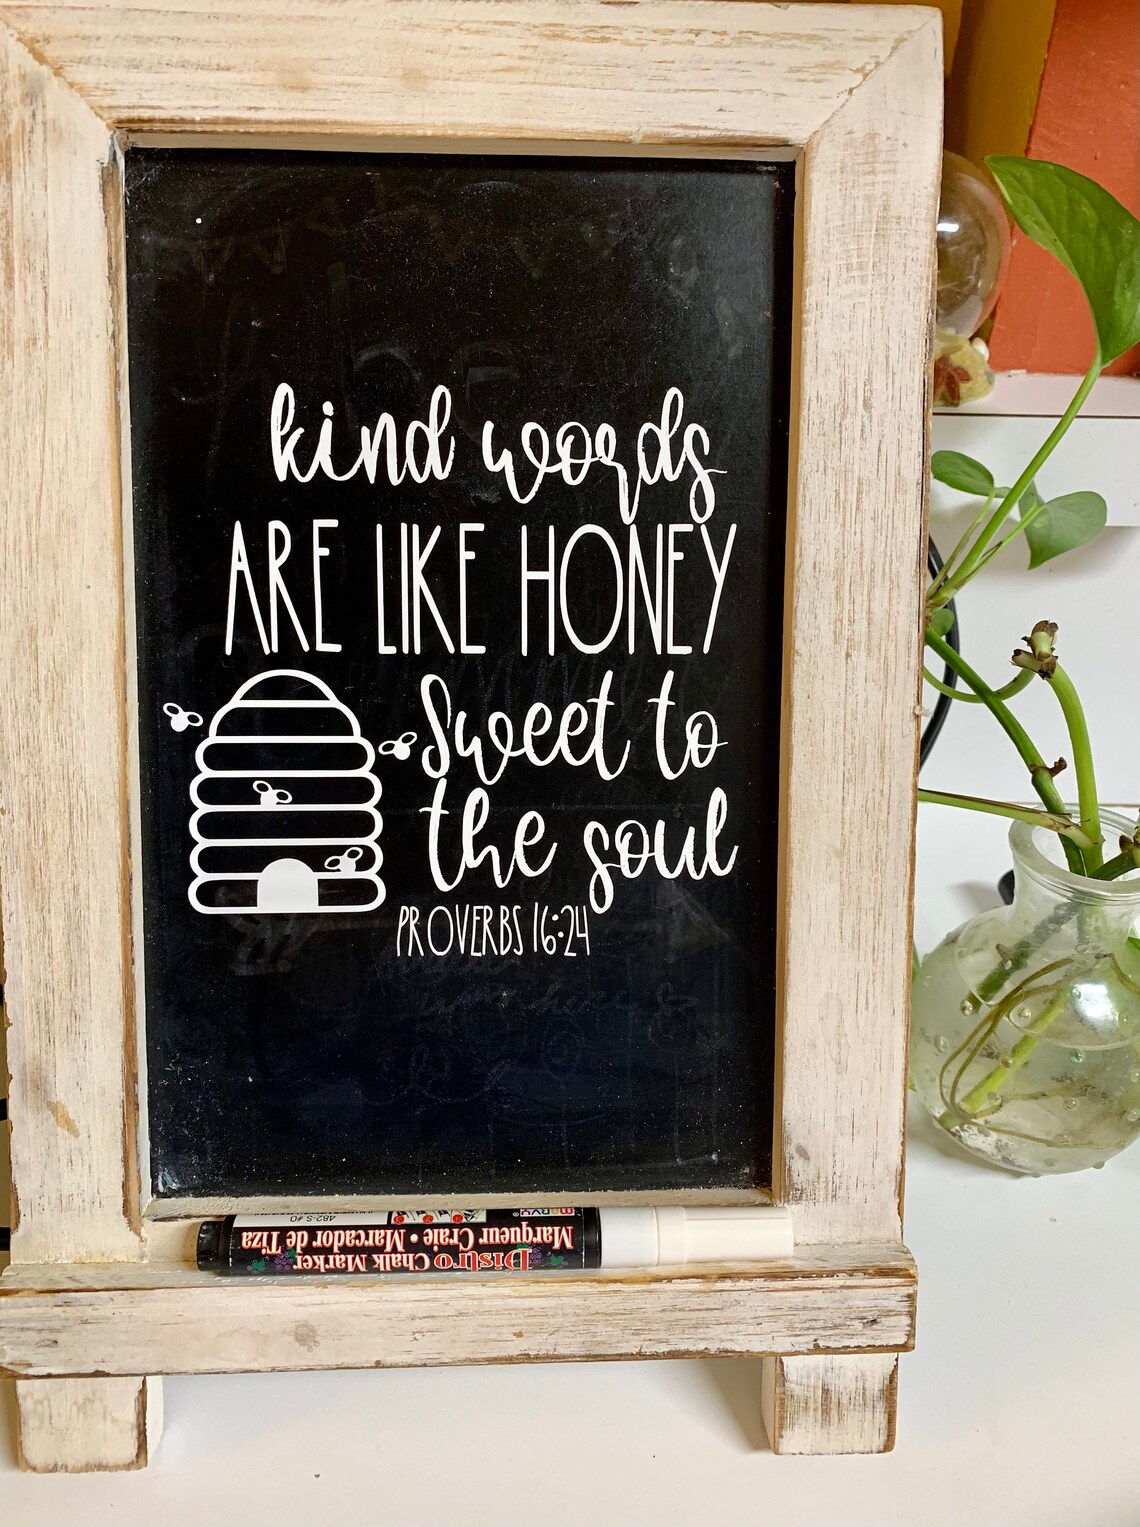 kind words
ARE LIKE HONEY
Sweet to
the soul
PROVERBS 16:24
Bistro Chalk Marker
Marqueur Craie • Marcador de Tiza
482-S #0
MARVY